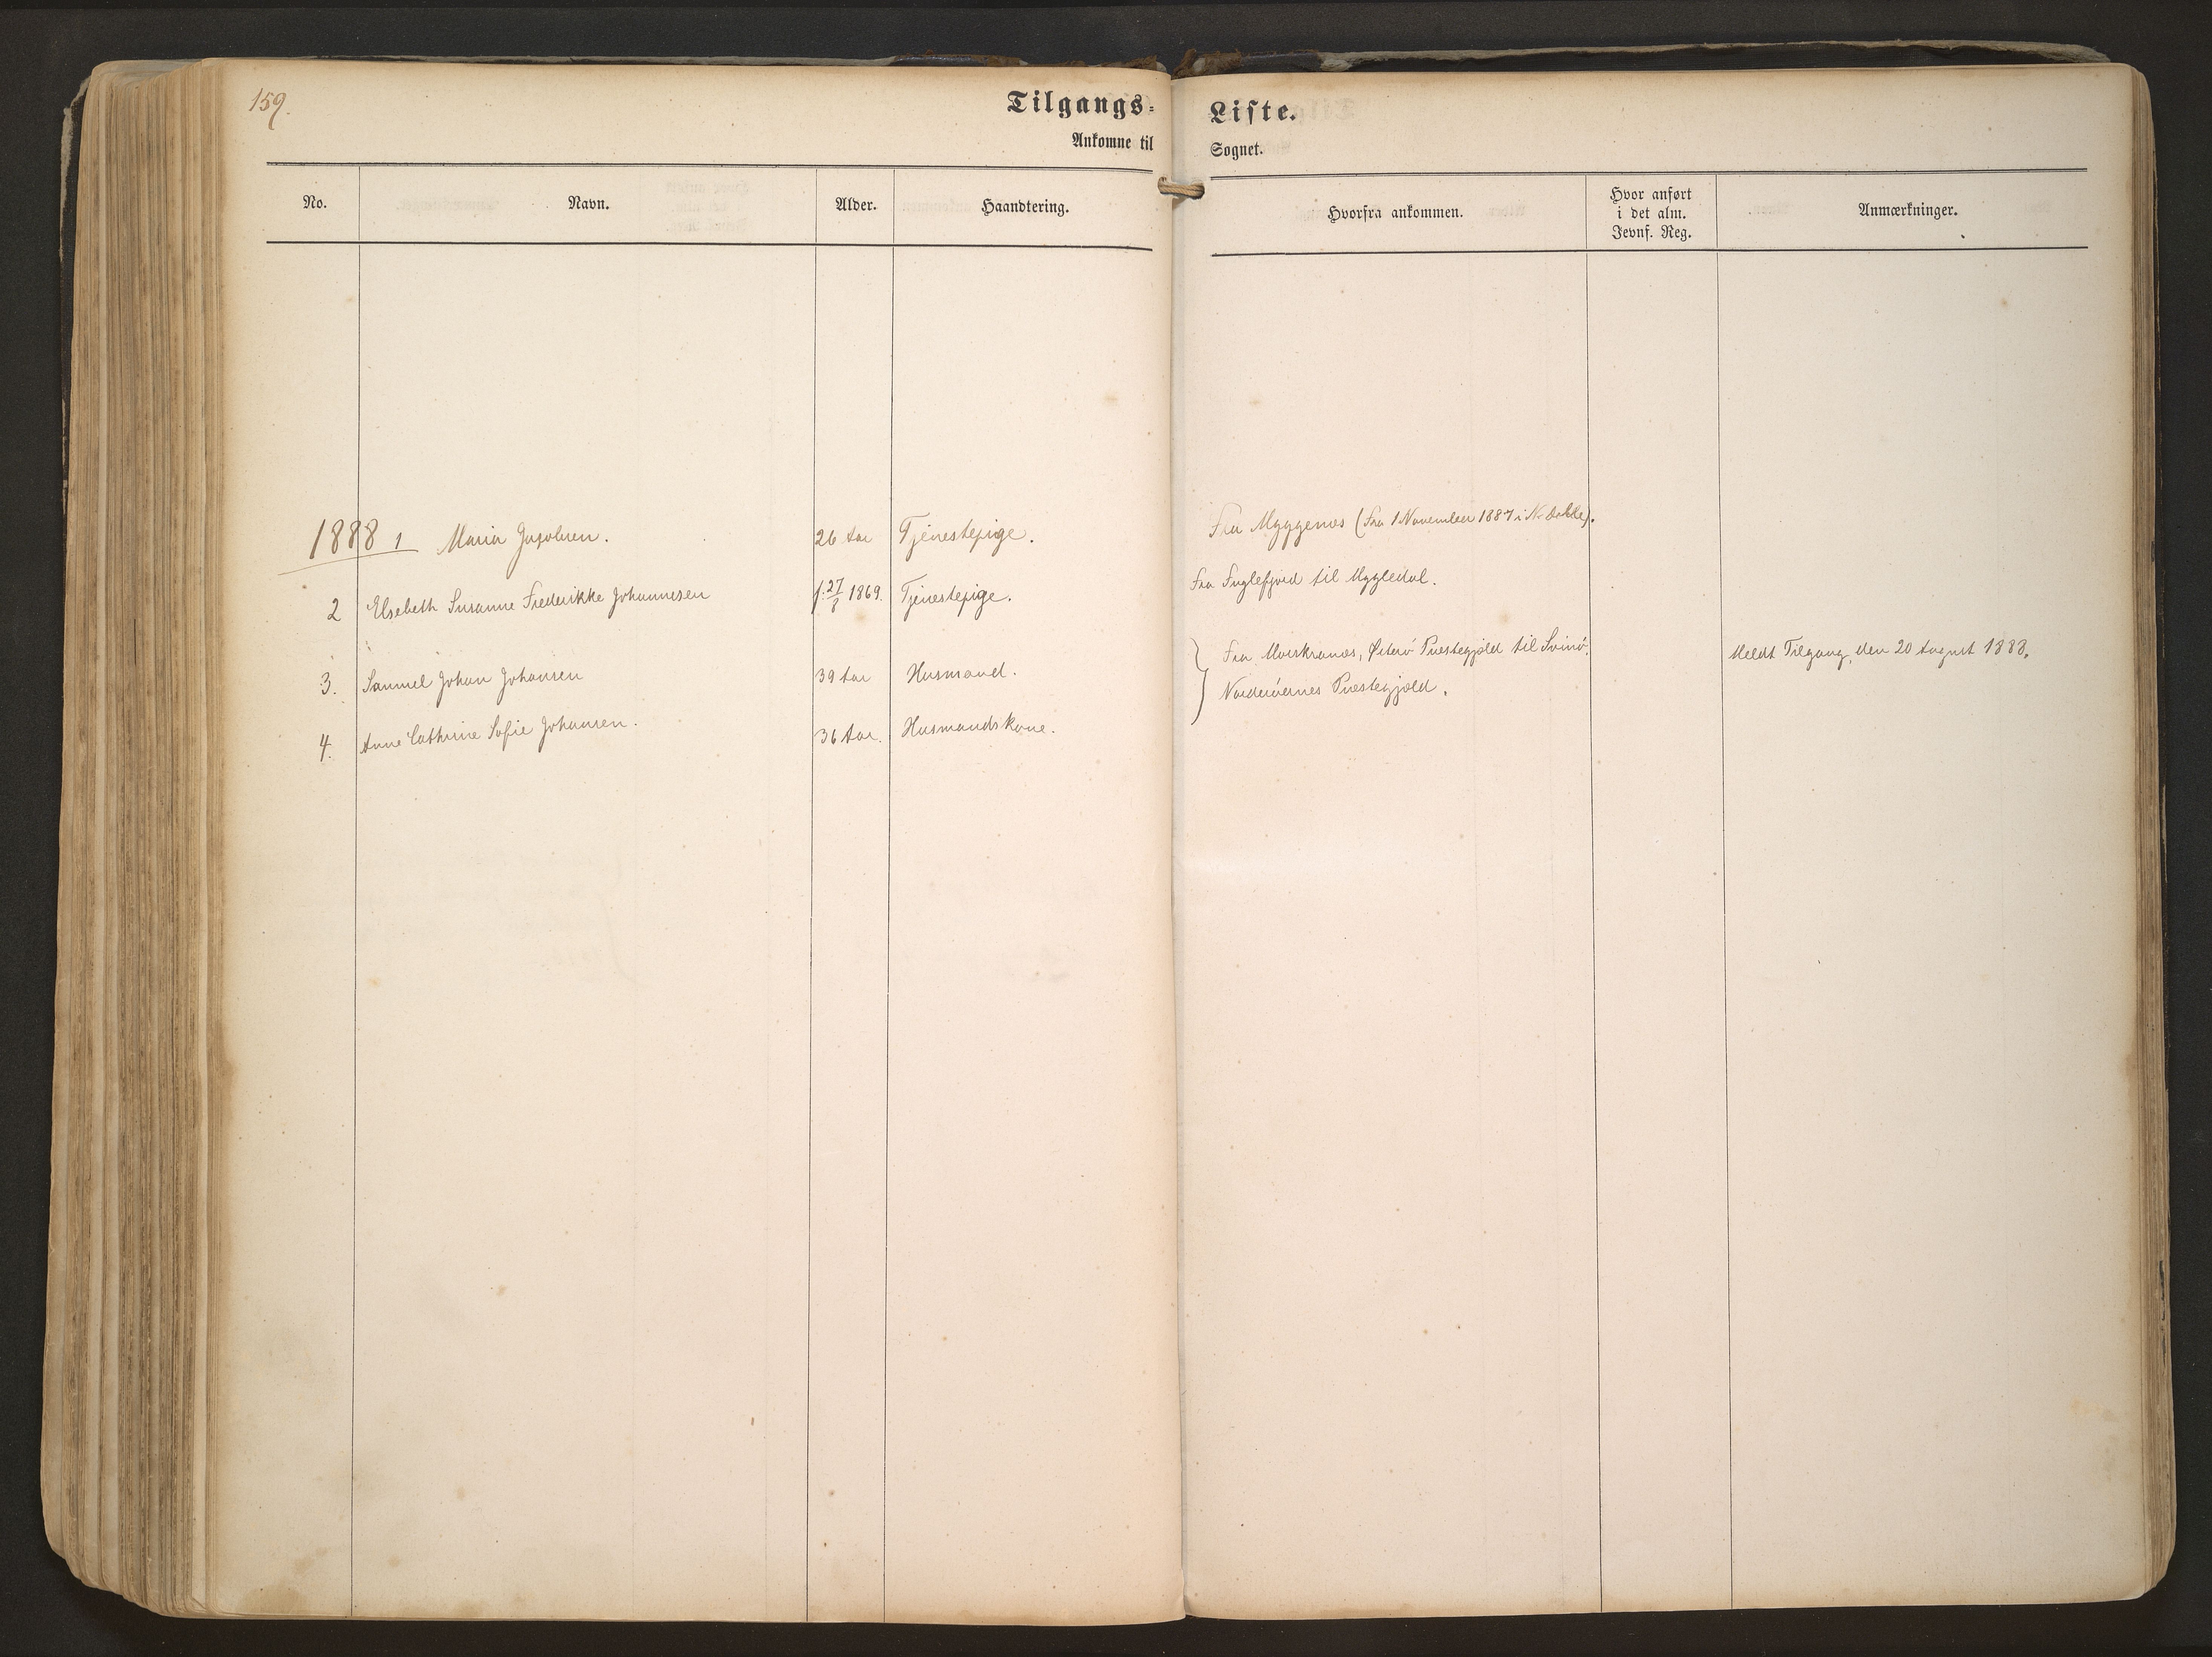 159.
Tilgangs-Liste.
Ankomne til Sognet.
No. Navn. Alder. Haandtering. Hvorfra ankommen. Hvor anført i det alm. Jevnf. Reg. Anmærkninger.
1888 1 Maria Jacobsen. 26 Aar Tjenestepige. Fra Myggenæs (Fra 1 November 1887 i
2 Elsebeth Susanne Frederikke Johannesen f. 27/8 1869. Tjenestepige. Fra Fuglefjord til Myggledal.
3. Samuel Johan Johansen 39 Aar Husmand. Fra Morskranæs, Østerø Præstegjæld til Svinø, Meldt Tilgang, den 20 August 1888.
Norderøernes Præstegjæld.
4. Anne Cathrine Sofie Johansen. 36 Aar. Husmandskone.